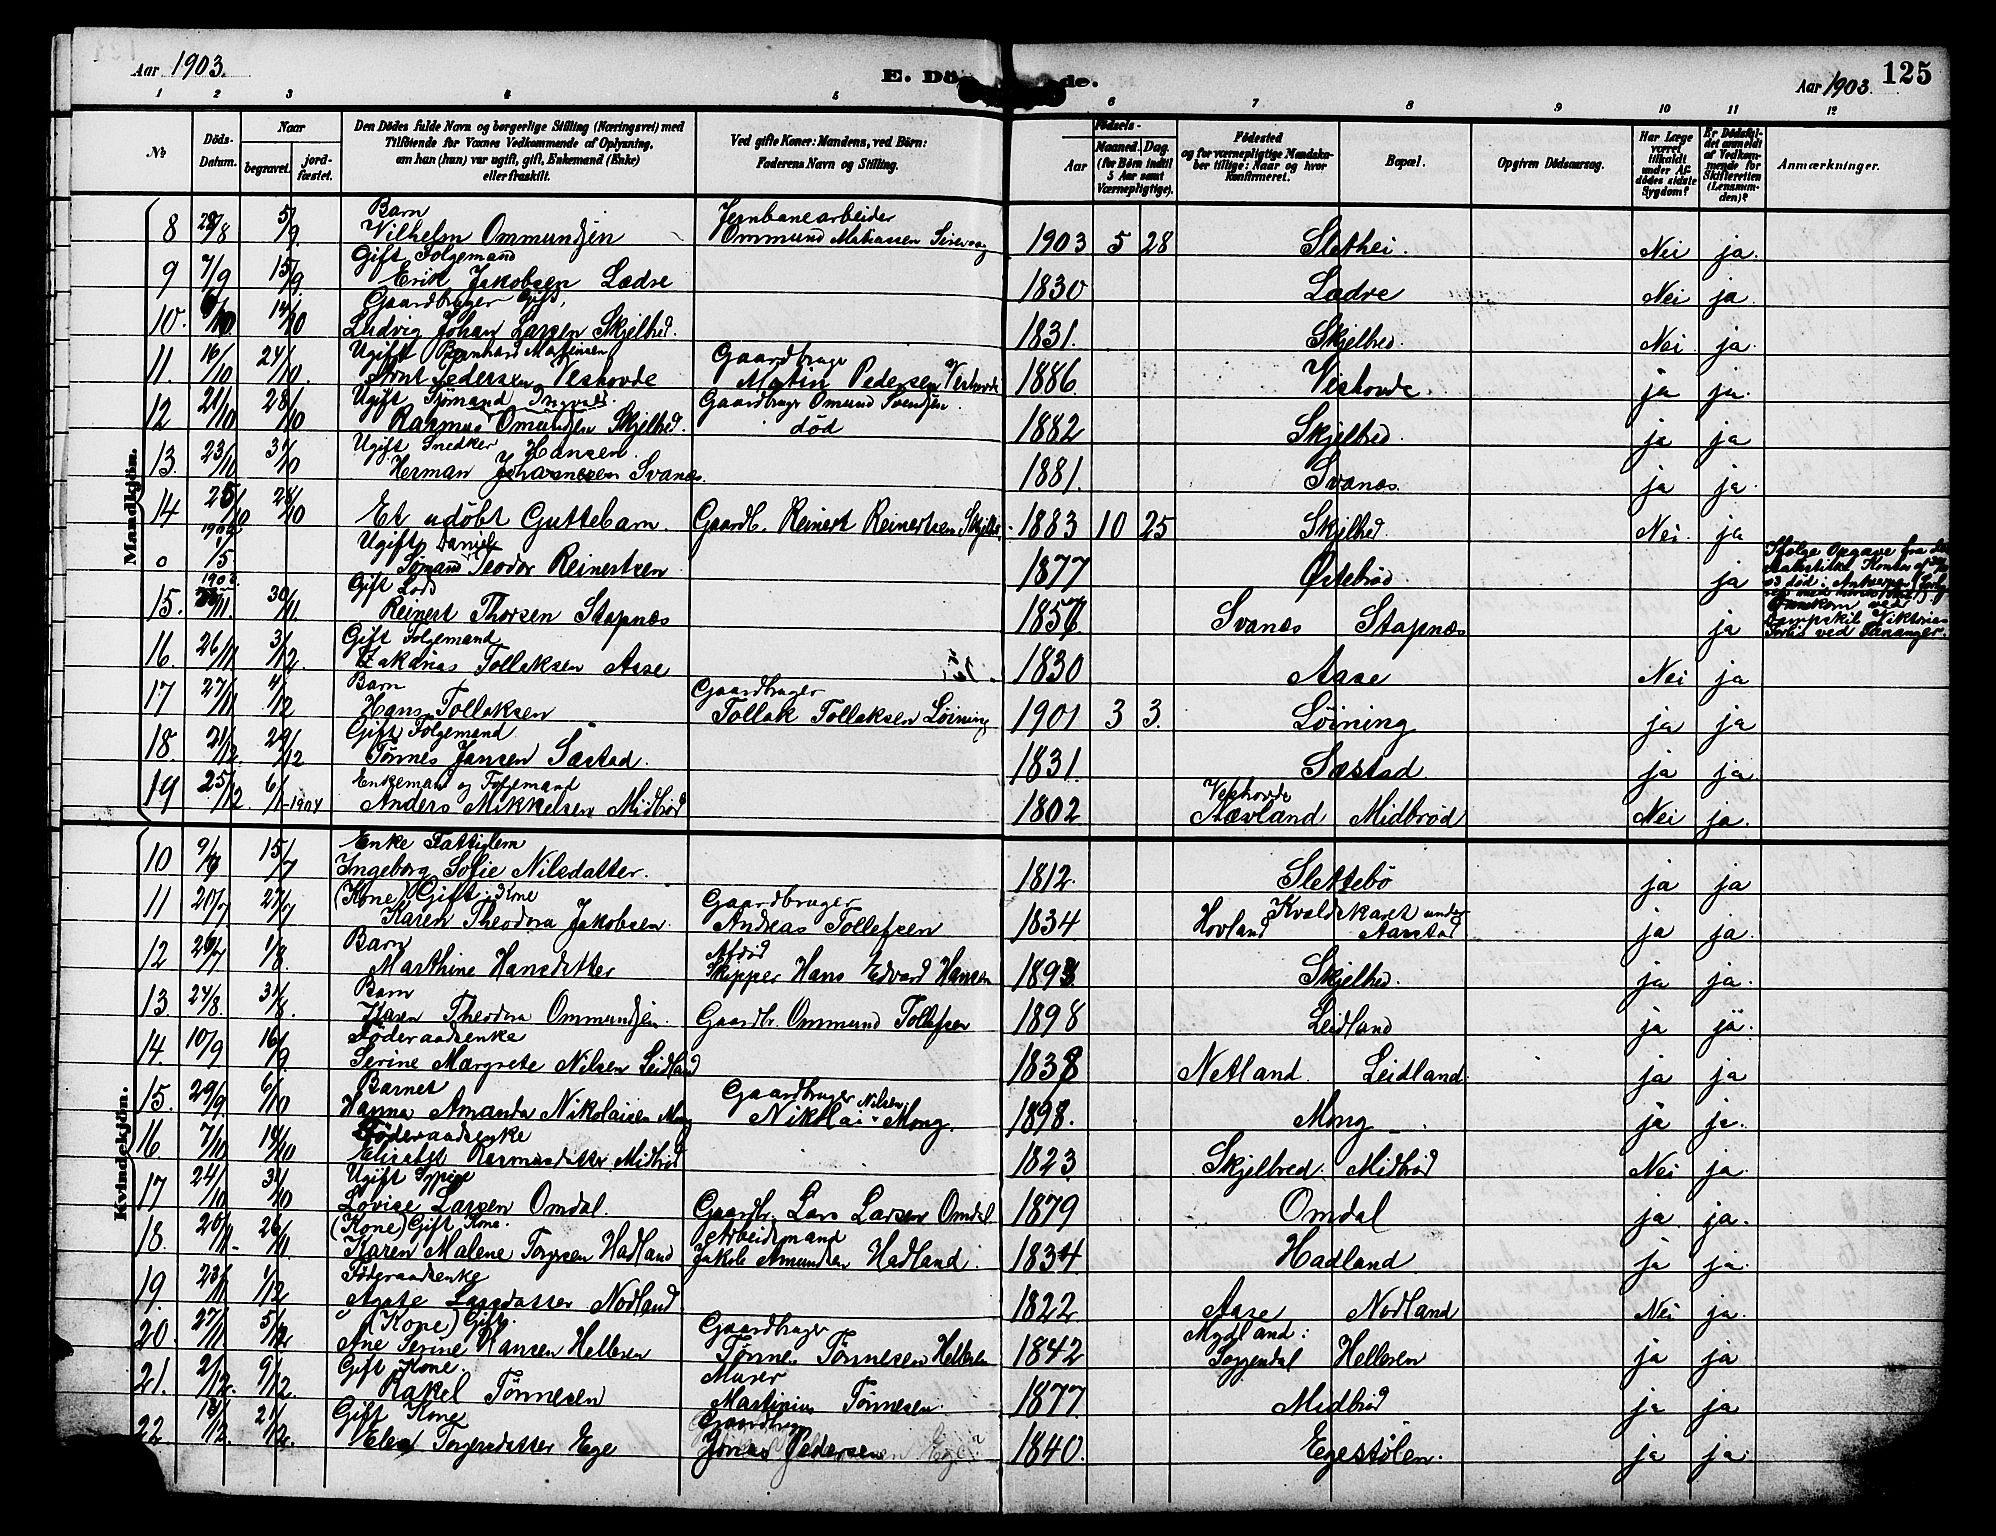 Aar 1903.
E. Dö
de.
Aar 1903.
125
1 2 3 4 5 6 7 8 9 10 11 12
No.
Döds-Datum.
Naar
begravet.
jord-fæstet.
Den Dödes fulde Navn og borgerlige Stilling (Næringsvei) med
Tilföiende for Voxnes Vedkommende af Oplysning,
om han (hun) var ugift, gift, Enkemand (Enke)
eller fraskilt.
Ved gifte Koner: Mandens, ved Börn:
Faderens Navn og Stilling.
Födsels-
Aar
Maaned.
Dag.
(for Börn indtil
5 Aar samt
Værnepligtige).
Födested
og for værnepligtige Mandska-
ber tillige: Naar og hvor
konfirmeret.
Bopæl.
Opgiven Dödsaarsag.
Har Læge
været
tilkaldt
under Af-
dödes sidste
Sygdom?
Er Dödsfal-
det anmeldt
af Vedkom-
mende for
Skifteretten
(Lensman-
den)?
Anmærkninger.
Mandkjön.
8 28/8 5/9 Barn Jernbanearbeider
Wilhelm Ommundsen Ommund Matiassen 1903 5 28 Slethei Nei ja.
9 7/9 15/9 Gift Folgemand
Erik Jakobsen Lædre 1830 Lædre Nei ja
10. 6/10 14/10 Gaardbruger Gift,
Ludvig Johan Larsen Skjelbred. 1831. Skjelbred. Nei. ja.
11. 16/10 24/10. Ugift Bernhard Martinsen Gaardbruge
Arnt Pedersen Veshovde Matin Pedersen Veshovde 1886. Veshovde. ja ja.
12 21/10 28/10 Ugift Sjømand Ingvald Gaardbrugr Omund Svendsen.
Rasmus Omundsen Skjelbred. død 1882 Skjelbred. ja ja
13. 23/10 31/10 Ugift Snedker Hansen.
Herman Johannesen Svanes. 1881. Svanes. ja ja.
14 25/10 28/10 Et udøbt Guttebarn. Gaardb. Reinert Reinertsen 1883 10 25 Skjelbred. Nei. ja
0 1/5 Ugift Daniel
Sømand Teodor Reinertsen 1877 Østebrød ja
15. 30/11. Gift Lods
Reinert Thorsen Stapnæs 1857 Svanæs Stapnæs ja
Ifølge Opgave fra det
statistiske Kontor af
03 død i Antverpen
Omkom ved
Dampskib Viktorias
Forlis ved Tananger.
16. 26/11 3/12 Gift Folgemand
Zakarias Tollaksen Aase 1830 Aase Nei ja
17 27/11 4/12 Barn Gaardbruger
Hans Tollaksen Tollak Tollaksen Løining 1901 3 3. Løining ja ja
18. 21/12. 29/12 Gift Folgemand
Tønnes Jansen Sæstad. 1831. Sæstad ja ja
19 25/12. 6/1-1904 Enkemand og Folgemand
Anders Mikkelsen Midbrød 1802 Veshovde
Stævland Midbrød Nei ja.
Kvindekjön.
10 9/7 15/7 Enke Fattiglem
Ingeborg Sofie Nilsdatter. 1812. Slettebö ja ja
11 20/7 27/7 (Kone) Gift Kone Gaardbruger
Karen Theodora Jakobsen Andreas Tollefsen 1834 Hovland Kvaldskaret under Aarstad ja ja.
12 26/7 1/8. Barn Afdød
Marthine Hansdatter Skipper Hans Edvard Hansen 1893. Skjelbred. ja ja.
13. 24/8. 31/8. Barn
Karen Theodora Ommundsen. Gaardbr. Ommund Tollefsen 1898 Leidland ja ja.
14. 10/9 16/9 Føderaadsenke
Serine Margrete Nilsen Leidland 1838 Netland. Leidland. ja ja
15. 29/9. 6/10 Barnet Gaardbruger Nilsen.
Hanna Amanda Nikolaisen Mong Nikolai Mong. 1898. Mong ja ja.
16 7/10 14/10 Føderaadsenke
Elisabet Rasmusdatter Midbrød 1823 Skjelbred. Midbrød Nei ja.
17 24/10 31/10 Ugift Sypige
Lovise Larsen Omdal. Gaardbr. Lars Larsen Omdal. 1879 Omdal ja. ja.
18. 20/11. 26/11 (Kone) Gift Kone. Arbeidsmand
Karen Malene Torgersen Hadland Jakob Amundsen Hadland. 1834 Hadland. ja ja.
19. 23/11 1/12 Føderaadsenke
Agate Larsdatter Nodland 1822 Aase Nodland Nei ja.
20. 27/11 5/12 (Kone) Gift. Gaardbruger
Ane Serine Hansen Helleren Tønnes Tønnesen Helleren 1842 Mydland:
Soggendal Helleren ja ja
21. 2/12. 9/12. Gift Kone. Murer
Rakel Tønnesen Martinius Tønnesen. 1877. Midbrød ja ja
22. 21/12. Gift Kone Gaardbruger
Elen Torgersdatter Ege Jonas Pedersen 1840. Egestølen. ja ja.